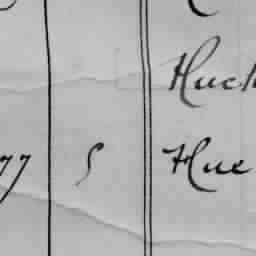 Huck
77 5 Hue